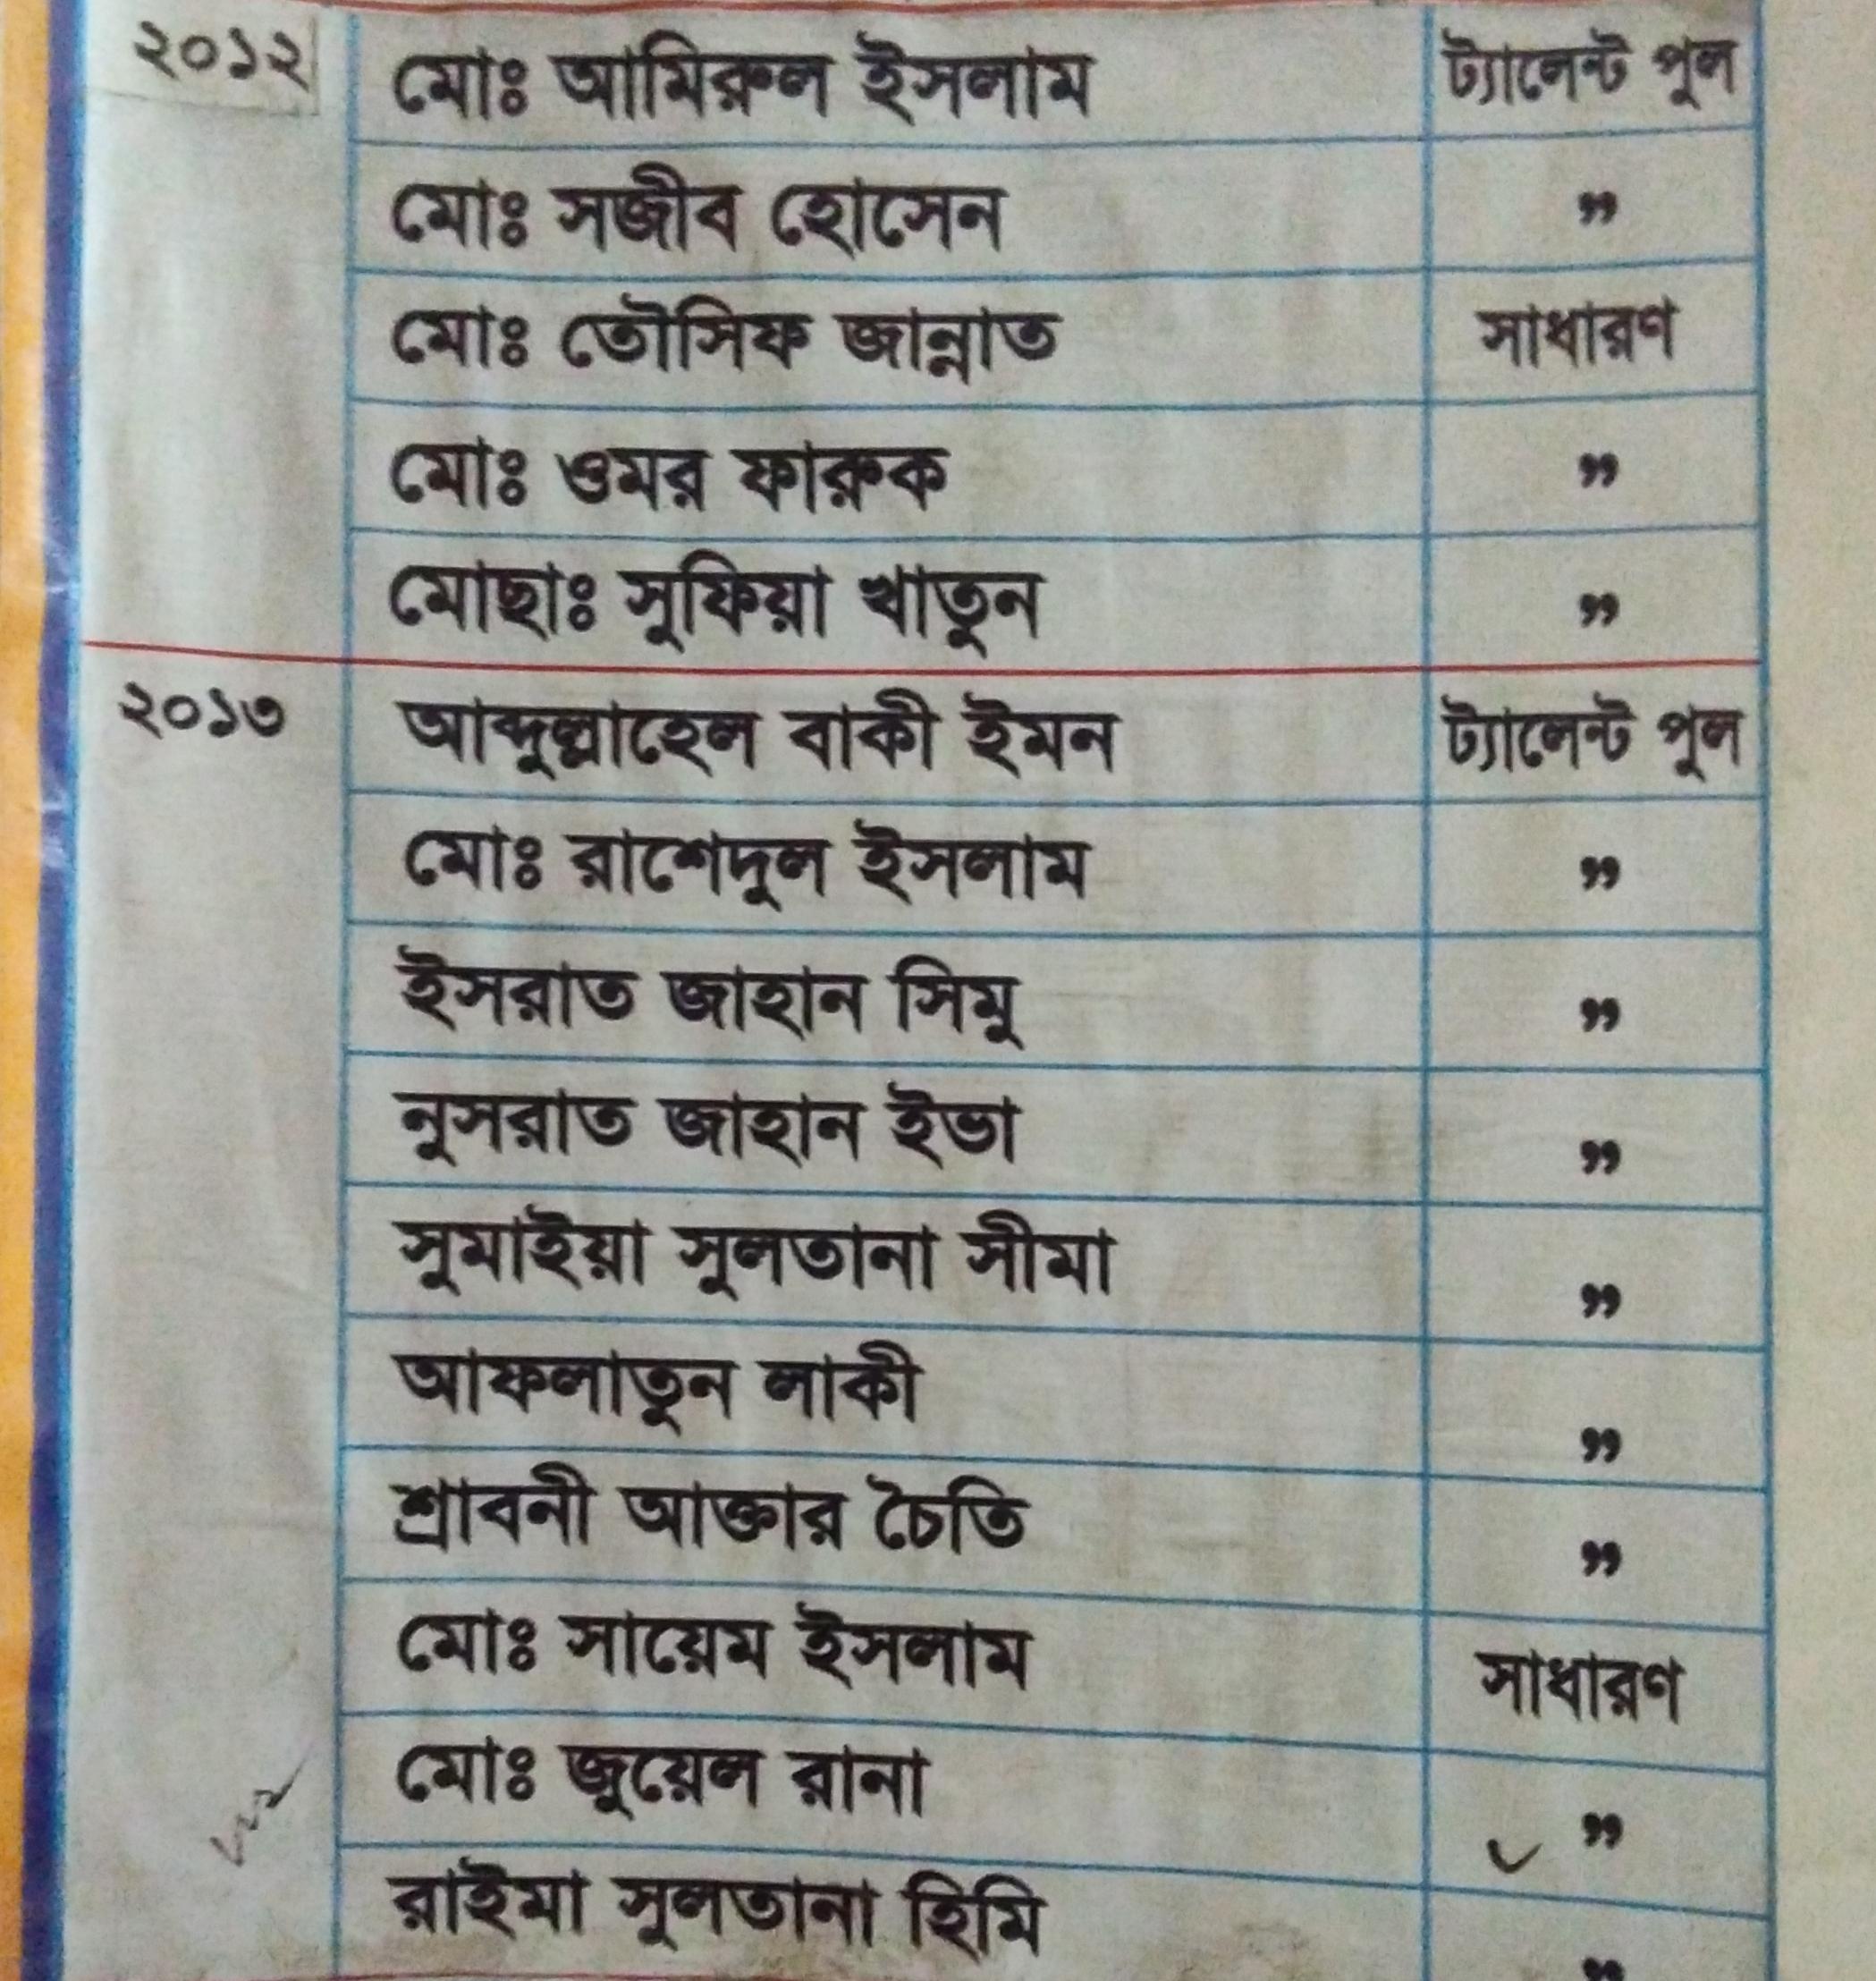 ২০১২ মোঃ আমিরুল ইসলাম ট্যালেন্ট পুল
মোঃ সজীব হোসেন ”
মোঃ তৌসিফ জান্নাত সাধারণ
মোঃ ওমর ফারুক ”
মোছাঃ সুফিয়া খাতুন ”
২০১৩ আব্দুল্লাহেল বাকী ইমন ট্যালেন্ট পুল
মোঃ রাশেদুল ইসলাম ”
ইসরাত জাহান সিমু ”
নুসরাত জাহান ইভা ”
সুমাইয়া সুলতানা সীমা ”
আফলাতুন লাকী ”
শ্রাবনী আক্তার চৈতি ”
মোঃ সায়েম ইসলাম সাধারণ
মোঃ জুয়েল রানা ”
রাইমা সুলতানা হিমি ”